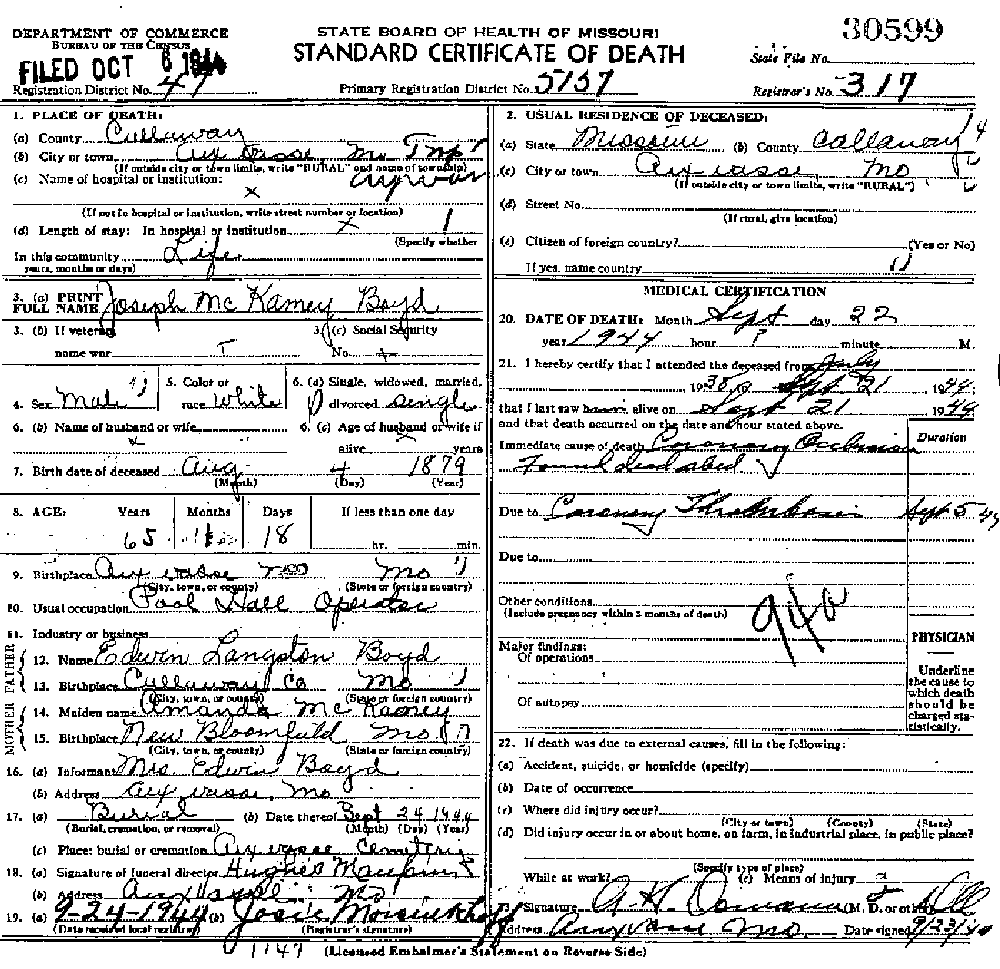 30599
DEPARTMENT OF COMMERCE
BUREAU OF THE CENSUS
STATE BOARD OF HEALTH OF MISSOURI
STANDARD CERTIFICATE OF DEATH
State File No.
FILED OCT 6 1944
Registration District No. 47
Primary Registration District No. 5137
Registrar's No. 317
1. PLACE OF DEATH:
(a) County Callaway
(b) City or town Auxvasse Mo Tnp
(If outside city or town limits, write "RURAL" and name of township)
(c) Name of hospital or institution:
x
(If not in hospital or institution, write street number or location)
(d) Length of stay: In hospital or institution x
(Specify whether
In this community Life
years, months or days)
3. (a) PRINT FULL NAME Joseph McKamey Boyd
3. (b) If veteran, name war
3. (c) Social Security No.
4. Sex Male
5. Color or race White
6. (a) Single, widowed, married, divorced single
6. (b) Name of husband or wife x
6. (c) Age of husband or wife if alive x years
7. Birth date of deceased Aug 4 1879
(Month) (Day) (Year)
8. AGE: Years Months Days If less than one day
65 1 18 hr. min.
9. Birthplace Auxvasse Mo
(City, town, or county) (State or foreign country)
10. Usual occupation Pool Hall Operator
11. Industry or business
FATHER
12. Name Edwin Langston Boyd
13. Birthplace Callaway Co Mo
(City, town, or county) (State or foreign country)
MOTHER
14. Maiden name Amanda McKamey
15. Birthplace New Bloomfield Mo
(City, town, or county) (State or foreign country)
16. (a) Informant Mrs Edwin Boyd
(b) Address Auxvasse, Mo
17. (a) Burial (b) Date thereof Sept 24 1944
(Burial, cremation, or removal) (Month) (Day) (Year)
(c) Place: burial or cremation Auxvasse Cemetery
18. (a) Signature of funeral director Hughes Maupin
(b) Address Auxvasse Mo
19. (a) 9-24-1944 (b) Josie
(Date received local registrar) (Registrar's signature)
1147
2. USUAL RESIDENCE OF DECEASED:
(a) State Missouri (b) County Callaway 14
(c) City or town Auxvasse Mo
(If outside city or town limits, write "RURAL")
(d) Street No.
(If rural, give location)
(e) Citizen of foreign country? (Yes or No)
If yes, name country
MEDICAL CERTIFICATION
20. DATE OF DEATH: Month Sept day 22
year 1944 hour ? minute M.
21. I hereby certify that I attended the deceased from July
1938 to Sept 21 1944
that I last saw h alive on Sept 21 1944
and that death occurred on the date and hour stated above.
Duration
Immediate cause of death Coronary Occlusion
Found dead abed
Due to Coronary Thrombosis Sept 5 44
Due to
Other conditions
(Include pregnancy within 3 months of death)
94a
Major findings:
Of operations
Of autopsy
PHYSICIAN
Underline the cause to which death should be charged statistically.
22. If death was due to external causes, fill in the following:
(a) Accident, suicide, or homicide (specify)
(b) Date of occurrence
(c) Where did injury occur?
(City or town) (County) (State)
(d) Did injury occur in or about home, on farm, in industrial place, in public place?
(Specify type of place)
While at work? (e) Means of injury
Signature (M. D. or other)
Address Auxvasse Mo. Date signed 9/23/44
(Licensed Embalmer's Statement on Reverse Side)